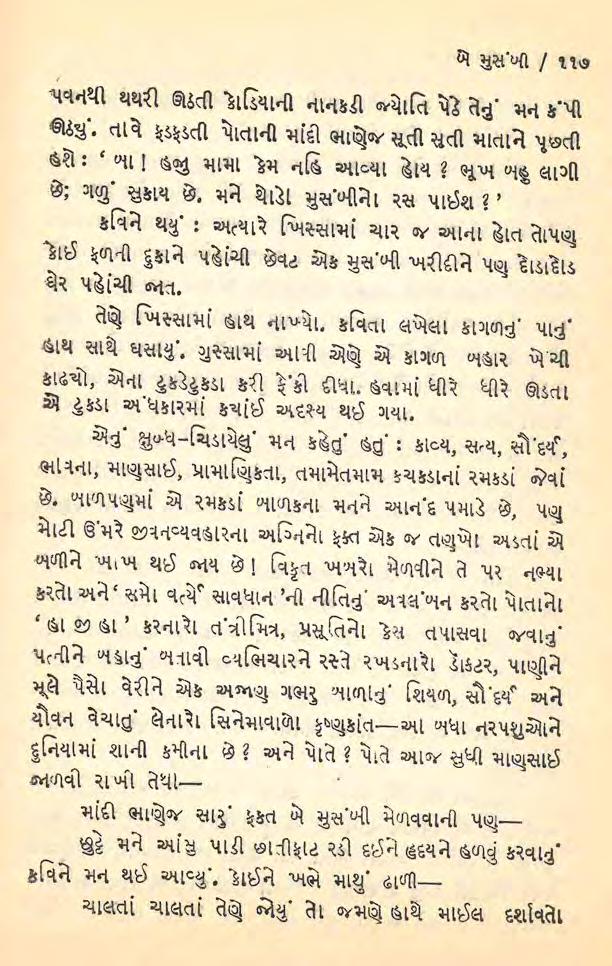 બે મુસંબી / ૧૧૭
પવનથી થથરી ઊઠતી કોડિયાની નાનકડી જ્યોતિ પેઠે તેનું મન કંપી
ઊઠ્યું. તાવે ફડફડતી પોતાની માંદી ભાણેજ સૂતી સૂતી માતાને પૂછતી
હશે : ‘ બા ! હજુ મામા કેમ નહિ આવ્યા હોય ? ભૂખ બહુ લાગી
છે; ગળું સુકાય છે. મને થોડો મુસંબીનો રસ પાઈશ ? ’
કવિને થયું : અત્યારે ખિસ્સામાં ચાર જ આના હોત તોપણ
કોઈ ફળની દુકાને પહોંચી છેવટ એક મુસંબી ખરીદીને પણ દોડાદોડ
ઘેર પહોંચી જાત.
તેણે ખિસ્સામાં હાથ નાખ્યો. કવિતા લખેલા કાગળનું પાનું
હાથ સાથે ઘસાયું. ગુસ્સામાં આવી એણે એ કાગળ બહાર ખેંચી
કાઢયો, એના ટુકડેટુકડા કરી ફેંકી દીધા. હવામાં ધીરે ધીરે ઊડતા
એ ટુકડા અંધકારમાં કયાંઈ અદૃસ્ય થઈ ગયા.
એનું ક્ષુબ્ધ–ચિડાયેલું મન કહેતું હતું : કાવ્ય, સત્ય, સૌંદર્ય,
ભાવના, માણસાઈ, પ્રામાણિકતા, તમામેતમામ કચકડાનાં રમકડાં જેવાં
છે. બાળપણમાં એ રમકડાં બાળકના મનને આનંદ પમાડે છે, પણ
મોટી ઉંમરે જીવનવ્યવહારના અગ્નિનો ફક્ત એક જ તણખો અડતાં એ
બળીને ખાખ થઈ જાય છે ! વિકૃત ખબરો મેળવીને તે પર નભ્યા
કરતો અને ‘ સમો વર્ત્યે સાવધાન ’ની નીતિનું અવલંબન કરતો પોતાનો
‘ હા જી હા ’ કરનારો તંત્રીમિત્ર, પ્રસૂતિનો કેસ તપાસવા જવાનું
પત્નીને બહાનું બતાવી વ્યભિચારને રસ્તે રખડનારો ડૉકટર, પાણીને
મૂલે પૈસો વેરીને એક અજાણ ગભરુ બાળાનું શિયળ, સૌંદર્ય અને
યૌવન વેચાતું લેનારો સિનેમાવાળો કૃષ્ણકાંત—આ બધા નરપશુઓને
દુનિયામાં શાની કમીના છે ? અને પોતે ? પોતે આજ સુધી માણસાઈ
જાળવી રાખી તેથી—
માંદી ભાણેજ સારું ફકત બે મુસંબી મેળવવાની પણ—
છુટ્ટે મને આંસુ પાડી છાતીફાટ રડી દઈને હૃદયને હળવું કરવાનું
કવિને મન થઈ આવ્યું. કોઈને ખભે માથું ઢાળી—
ચાલતાં ચાલતાં તેણે જોયું તો જમણે હાથે માઈલ દર્શાવતો